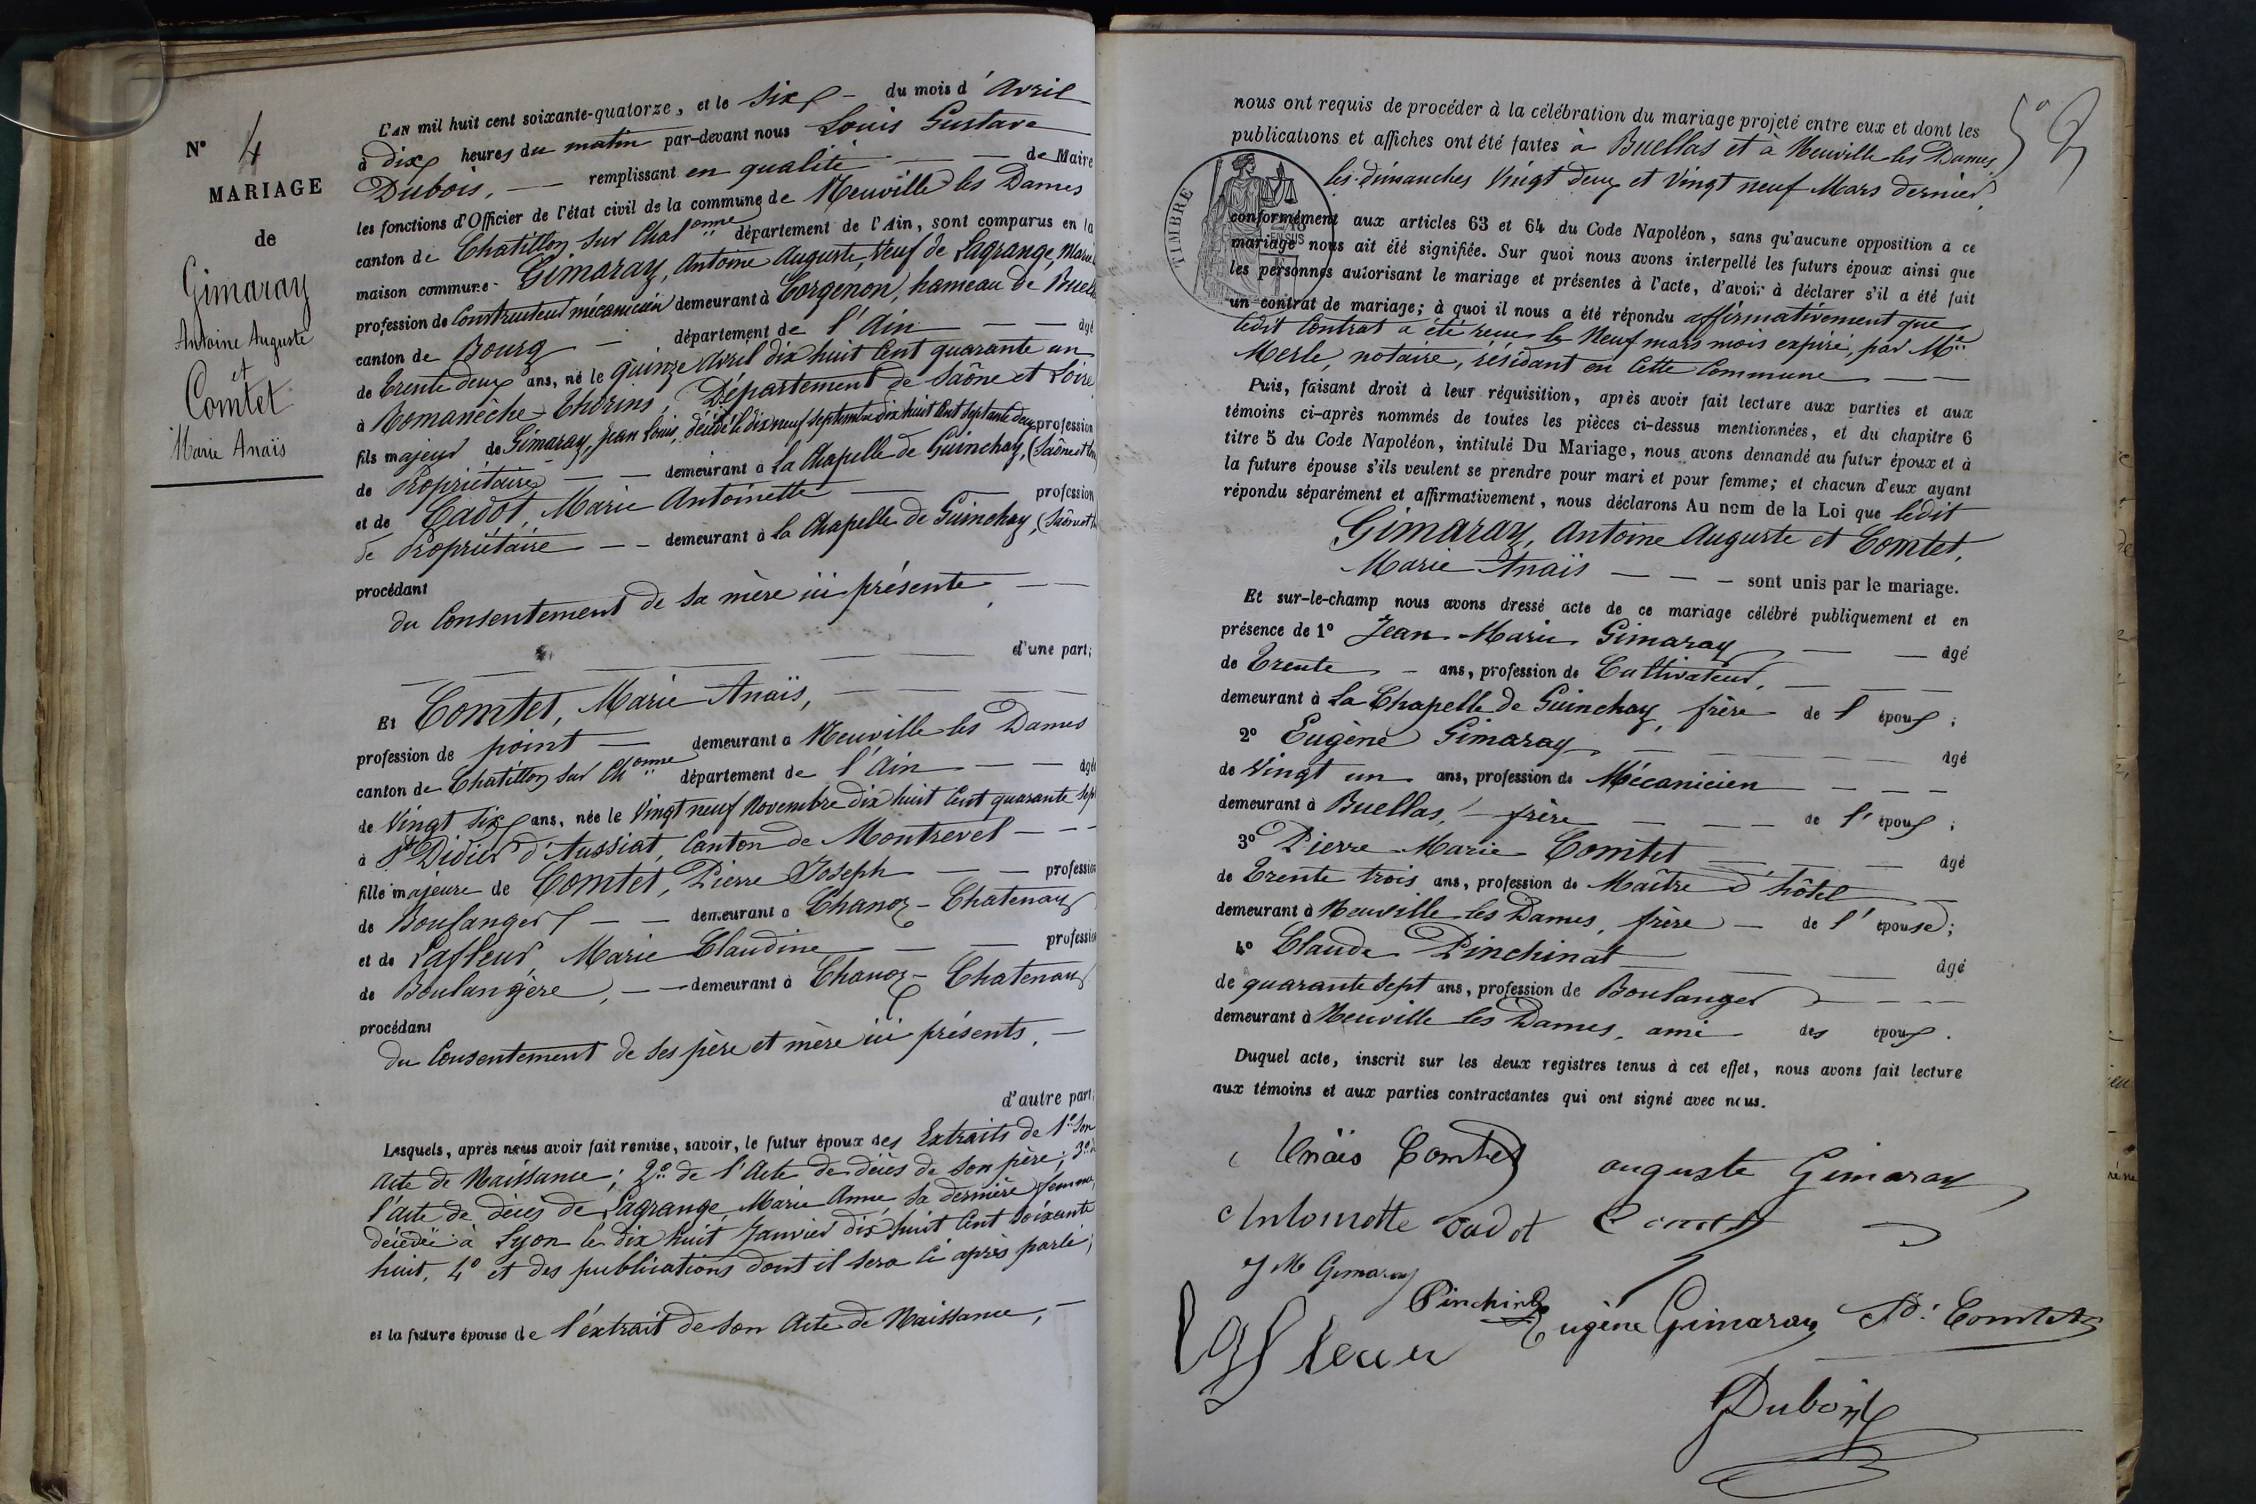 N° 4
MARIAGE
de
Gimaray
Antoine Auguste
et
Comtet
Marie Anaïs
L'AN mil huit cent soixante-quatorze, et le six du mois d'Avril
à dix heures du matin par-devant nous Louis Gustave
Dubois, — remplissant en qualité — — de Maire
les fonctions d'Officier de l'état civil de la commune de Neuville les Dames
canton de Chatillon sur Chalonne département de l'Ain, sont comparus en la
maison commune - Gimaray, Antoine Auguste, Veuf de Lagrange, Marie
profession de Constructeur mécanicien demeurant à Corgenon, hameau de Buellas
canton de Bourg — département de l'Ain — — âgé
de trente deux ans, né le quinze Avril dix huit cent quarante un
à Romanèche-Thorins, Département de Saône et Loire
fils majeur de Gimaray, Jean Louis, décédé le dix neuf septembre dix huit cent septante deux profession
de Propriétaire — — demeurant à la Chapelle de Guinchay, (Saône et Loire)
et de Cadot, Marie Antoinette — — profession
de Propriétaire — — demeurant à la Chapelle de Guinchay, (Saône et
procédant
du consentement de sa mère ici présente — —
— — — — d'une part;
Et Comtet, Marie Anaïs, — — — —
profession de point — demeurant à Neuville les Dames
canton de Chatillon sur Chonne département de l'Ain — — âgée
de Vingt six ans, née le Vingt neuf Novembre dix huit cent quarante sept
à St Didier d'Aussiat, Canton de Montrevel — — —
fille majeure de Comtet, Pierre Joseph — — profession
de Boulanger — — demeurant à Chanoz-Chatenay
et de Lafleur Marie Claudine — — profession
de Boulangère, — — demeurant à Chanoz-Chatenay
procédant
du Consentement de ses père et mère ici présents, —
d'autre part;
Lesquels, après nous avoir fait remise, savoir, le futur époux des Extraits de 1° son
acte de Naissance; 2° de l'Acte de décès de son père; 3° de
l'acte de décès de Lagrange, Marie Anne, sa dernière femme,
décédée à Lyon le dix huit Janvier dix huit cent soixante
huit, 4° et des publications dont il sera ci après parlé;
et la future épouse de l'extrait de son Acte de Naissance, —
nous ont requis de procéder à la célébration du mariage projeté entre eux et dont les
publications et affiches ont été faites à Buellas et à Neuville les Dames,
les dimanches Vingt deux et Vingt neuf Mars dernier,
TIMBRE
conformément aux articles 63 et 64 du Code Napoléon, sans qu'aucune opposition à ce
mariage nous ait été signifiée. Sur quoi nous avons interpellé les futurs époux ainsi que
les personnes autorisant le mariage et présentes à l'acte, d'avoir à déclarer s'il a été fait
un contrat de mariage; à quoi il nous a été répondu affirmativement que
ledit Contrat a été reçu le Neuf mars mois expiré, par Me
Merle, notaire, résidant en cette Commune — —
Puis, faisant droit à leur réquisition, après avoir fait lecture aux parties et aux
témoins ci-après nommés de toutes les pièces ci-dessus mentionnées, et du chapitre 6
titre 5 du Code Napoléon, intitulé Du Mariage, nous avons demandé au futur époux et à
la future épouse s'ils veulent se prendre pour mari et pour femme; et chacun d'eux ayant
répondu séparément et affirmativement, nous déclarons Au nom de la Loi que ledit
Gimaray, Antoine Auguste et Comtet,
Marie Anaïs — — — sont unis par le mariage.
Et sur-le-champ nous avons dressé acte de ce mariage célébré publiquement et en
présence de 1° Jean Marie Gimaray — — âgé
de Trente — ans, profession de Cultivateur, — — —
demeurant à La Chapelle de Guinchay, frère de l'époux;
2° Eugène Gimaray — — — — âgé
de Vingt un ans, profession de Mécanicien — — — —
demeurant à Buellas, — frère — — — de l'époux;
3° Pierre Marie Comtet — — — âgé
de Trente trois ans, profession de Maître d'hôtel —
demeurant à Neuville les Dames, frère — de l'épouse;
4° Claude Pinchinat — — — âgé
de quarante sept ans, profession de Boulanger — — —
demeurant à Neuville les Dames, ami — des époux.
Duquel acte, inscrit sur les deux registres tenus à cet effet, nous avons fait lecture
aux témoins et aux parties contractantes qui ont signé avec nous.
Anaïs Comtet auguste Gimaray
Antoinette Cadot Comtet
J M Gimaray
Pinchinat
Lafleur Eugène Gimaray Comtet
Dubois